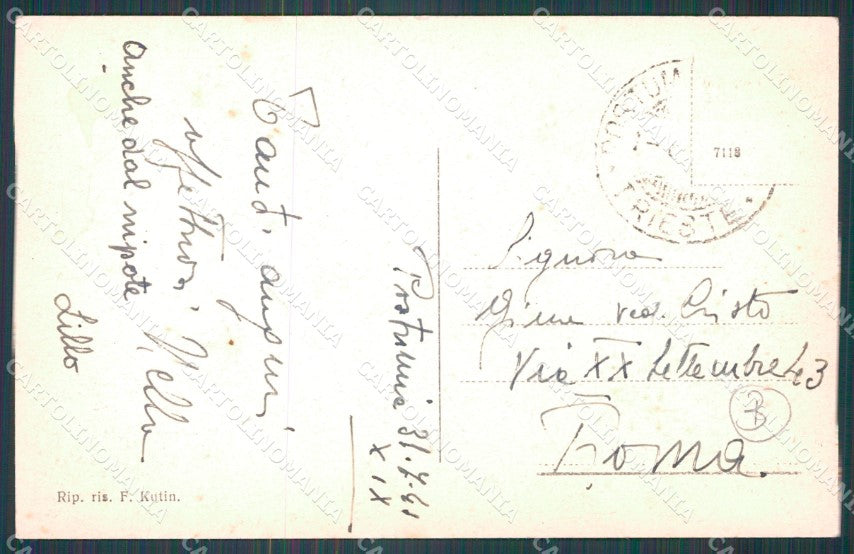 Tanti auguri
affettuosi Nella
anche dal nipote
Lillo
Postumia 31.7.41
XIX
POSTUM
TRIESTE
7118
Signora
ved. Cristo
Via XX Settembre 43
Roma
B
Rip. ris. F. Kutin.
CARTOLINOMANIA